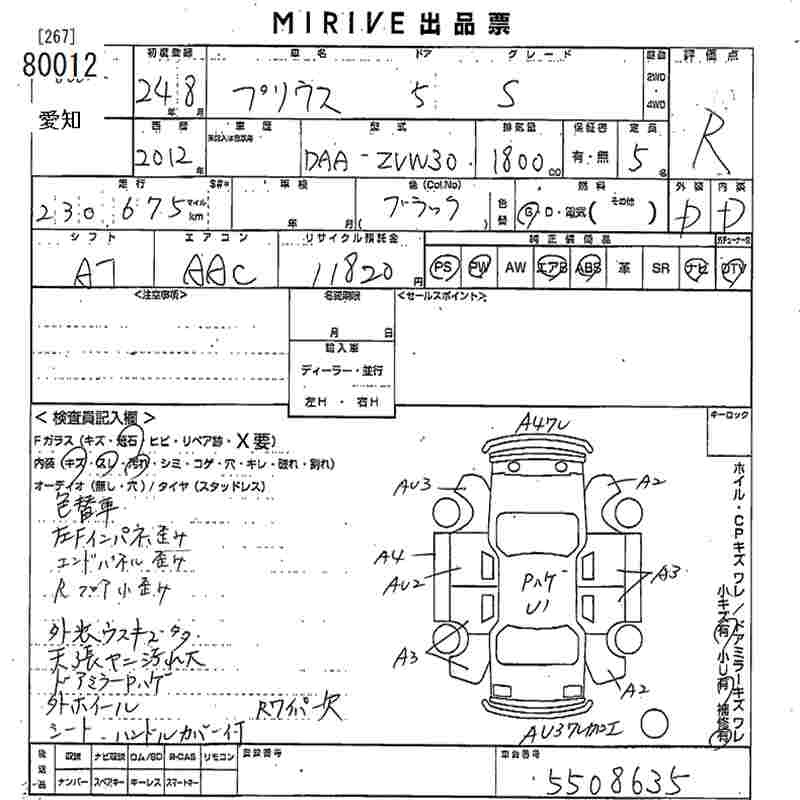 MIRIVE 出品票
[267]
80012
愛知
初度登録 車名 ドア グレード 駆動 評価点
24 8 年 月 プリウス 5 S 2WD・4WD R
西暦 車歴 型式 排気量 保証書 定員
2012 年 DAA-ZVW30 1800 CC 有・無 5 名
走行 車検 色(Col.No) 色替 燃料 外装 内装
230,675 マイル km 年 月 ブラック ( ) G・D・電気( その他 ) D D
シフト エアコン リサイクル預託金 純正装備品
AT AAC 11820 円 PS PW AW エアB ABS 革 SR ナビ DTV
<注意事項> 名変期限 <セールスポイント>
月 日
輸入車
ディーラー・並行
左H ・ 右H
<検査員記入欄> キーロック
Fガラス(キズ・飛石・ヒビ・リペア跡・X要)
内装(キズ・スレ・汚れ・シミ・コゲ・穴・キレ・破れ・割れ)
オーディオ(無し・穴)/タイヤ(スタッドレス)
色替車
左Fインパネ歪み
エンドパネル歪み
Rフロア小歪み
外装ウスキズ多
天張ヤニ汚れ大
ドアミラーPハゲ
外ホイール Rワイパー欠
シート、ハンドルカバー付
A4ワレ
AU3 A2
A4
AU2 PハゲU1 A3
A3
A2
AU3ワレ加工
ホイル・CPキズ ワレ/ドアミラーキズ ワレ
小キズ有/小U有/補修有
後送品 取説 ナビ取説 ロム/SD B-CAS リモコン 登録番号 車台番号
ナンバー スペアキー キーレス スマートキー 5508635